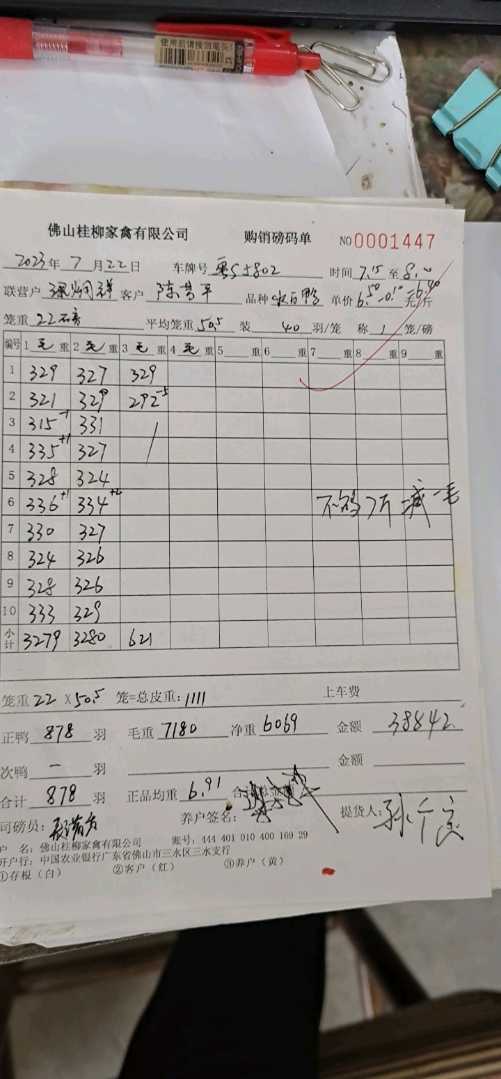 佛山桂柳家禽有限公司 购销磅码单 NO 0001447
2023年 7 月 22 日 车牌号 粤S5802 时间 7.15 至
联营户 客户 陈昔平 品种 水白鸭 单价 6.50-0.10=6.40 元/斤
笼重 22 平均笼重 50.5 装 40 羽/笼 称 1 笼/磅
编号 1 毛 重 2 毛 重 3 毛 重 4 毛 重 5 重 6 重 7 重 8 重 9 重
1 329 327 329
2 321 329 292 -5
3 315 -1 331
4 335 +1 327
5 328 324
6 336 +1 334 +2
7 330 327
8 324 326
9 328 326
10 333 329
小计 3279 3280 621
不够7斤 减一毛
笼重 22 X 50.5 笼=总皮重: 1111 上车费
正鸭 878 羽 毛重 7180 净重 6069 金额 38842
次鸭 一 羽 金额
合计 878 羽 正品均重 6.91
司磅员: 养户签名: 提货人:
户 名: 佛山桂柳家禽有限公司 账号: 444 401 010 400 169 29
开户行: 中国农业银行广东省佛山市三水区三水支行
①存根（白） ②客户（红） ③养户（黄）